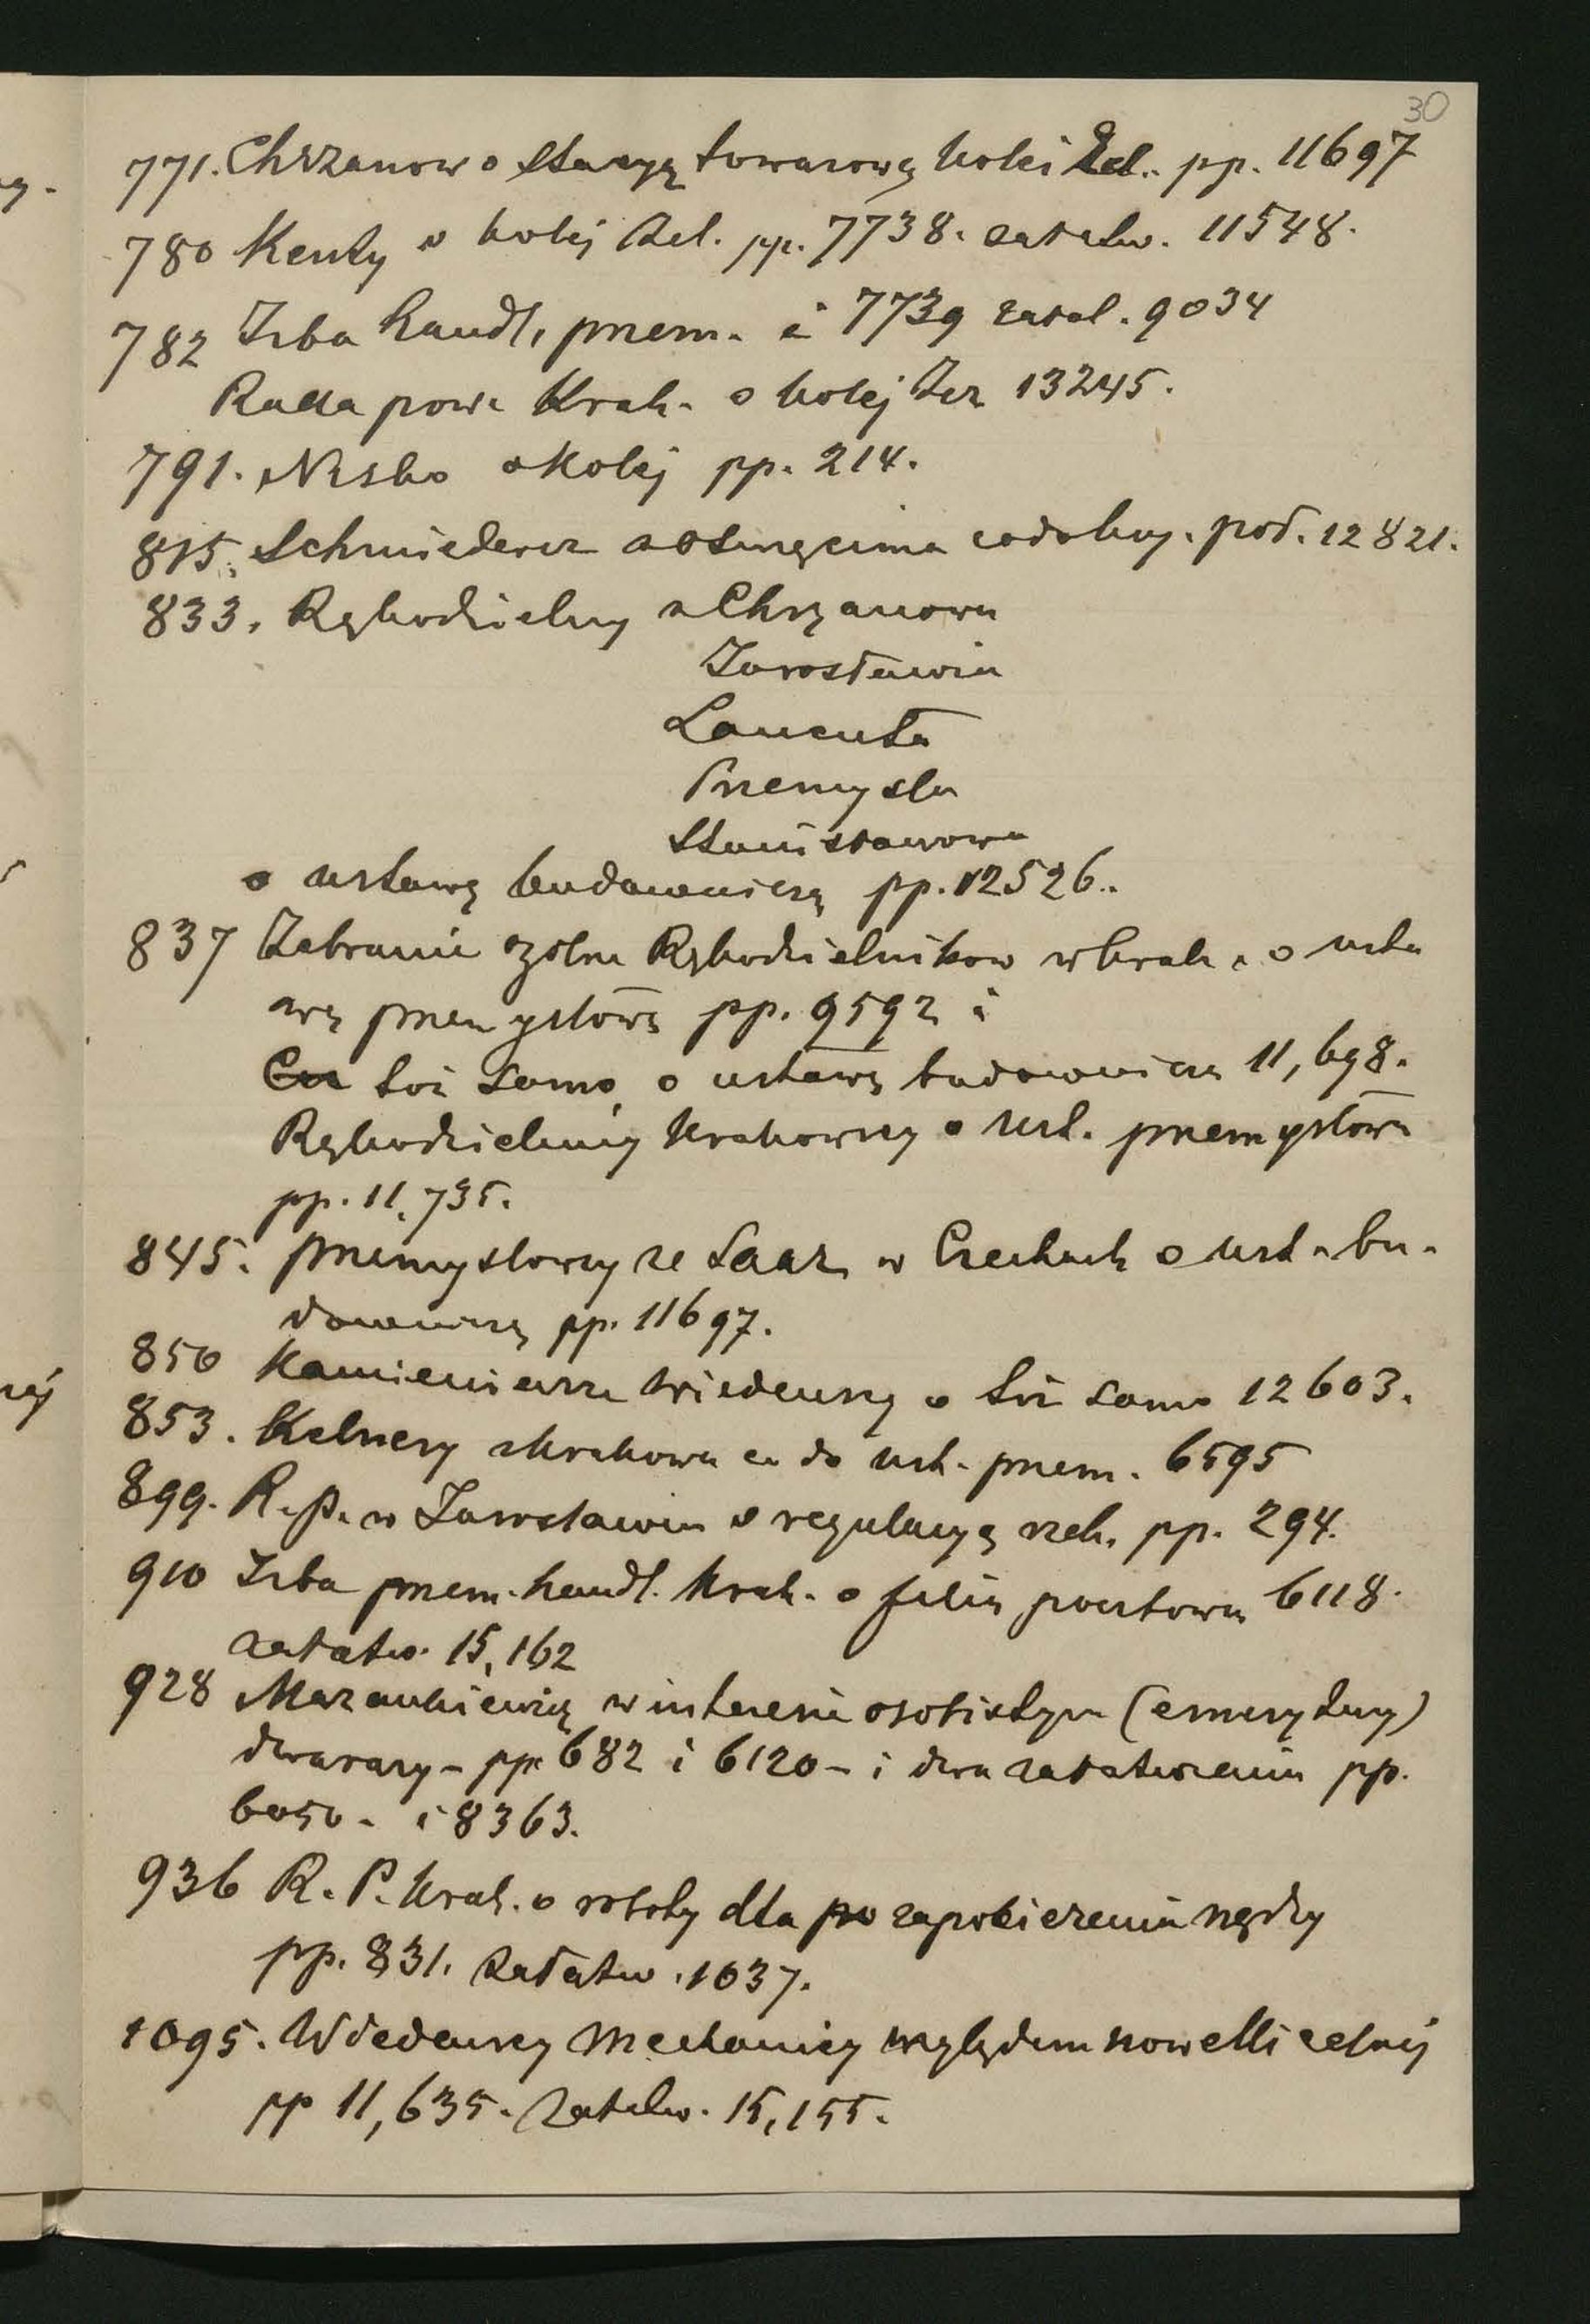 30
771. Chrzanow o stacyę towarową kolei żel. pp. 11697
780 Kenty o kolej żel. pp. 7738. załatw. 11548.
782 Izba handl. przem. i 7739 załat. 9034
Rada pow. Krak. o kolej żez 13245.
791. Nisko o Kolej pp. 214.
815. Schmiederer z Oświęcima pod. 12821.
833. Rękodzielnicy z Chrzanowa
Jarosławia
Lancuta
Przemysla
Stanisławowa
o ustawę budowniczą pp. 12526.
837 Zebranie Rękodzielnikow w Krak. o usta
wę przemysłową pp. 9592 i
Cu toż samo o ustawę budowniczą 11,698.
Rękodzielnicy Krakowscy o ust. przemysłową
pp. 11.735.
845. przemyslowcy ze Saaz w Czechach o ust. bu-
downiczą pp. 11697.
850 Kamieniarze Wiedenscy o toż samo 12603.
853. Kelnerzy z Krakowa co do ust. przem. 6595
899. R. p. w Jaroslawiu o regulacyę rzek. pp. 294.
910 Izba przem. handl. Krak. o filię pocztową 6118.
załatw. 15,162
928 Mazankiewicz w interesie osobistym (emerytury)
dwa razy – pp 682 i 6120 – i dwa załatwienia pp.
6050 – i 8363.
936 R. P. Krak. o roboty dla po zapobieżenia nędzy
pp. 831. załatw. 1037.
1095. Wiedenscy Mechanicy względem nowelli celnej
pp 11,635. załatw. 15,155.